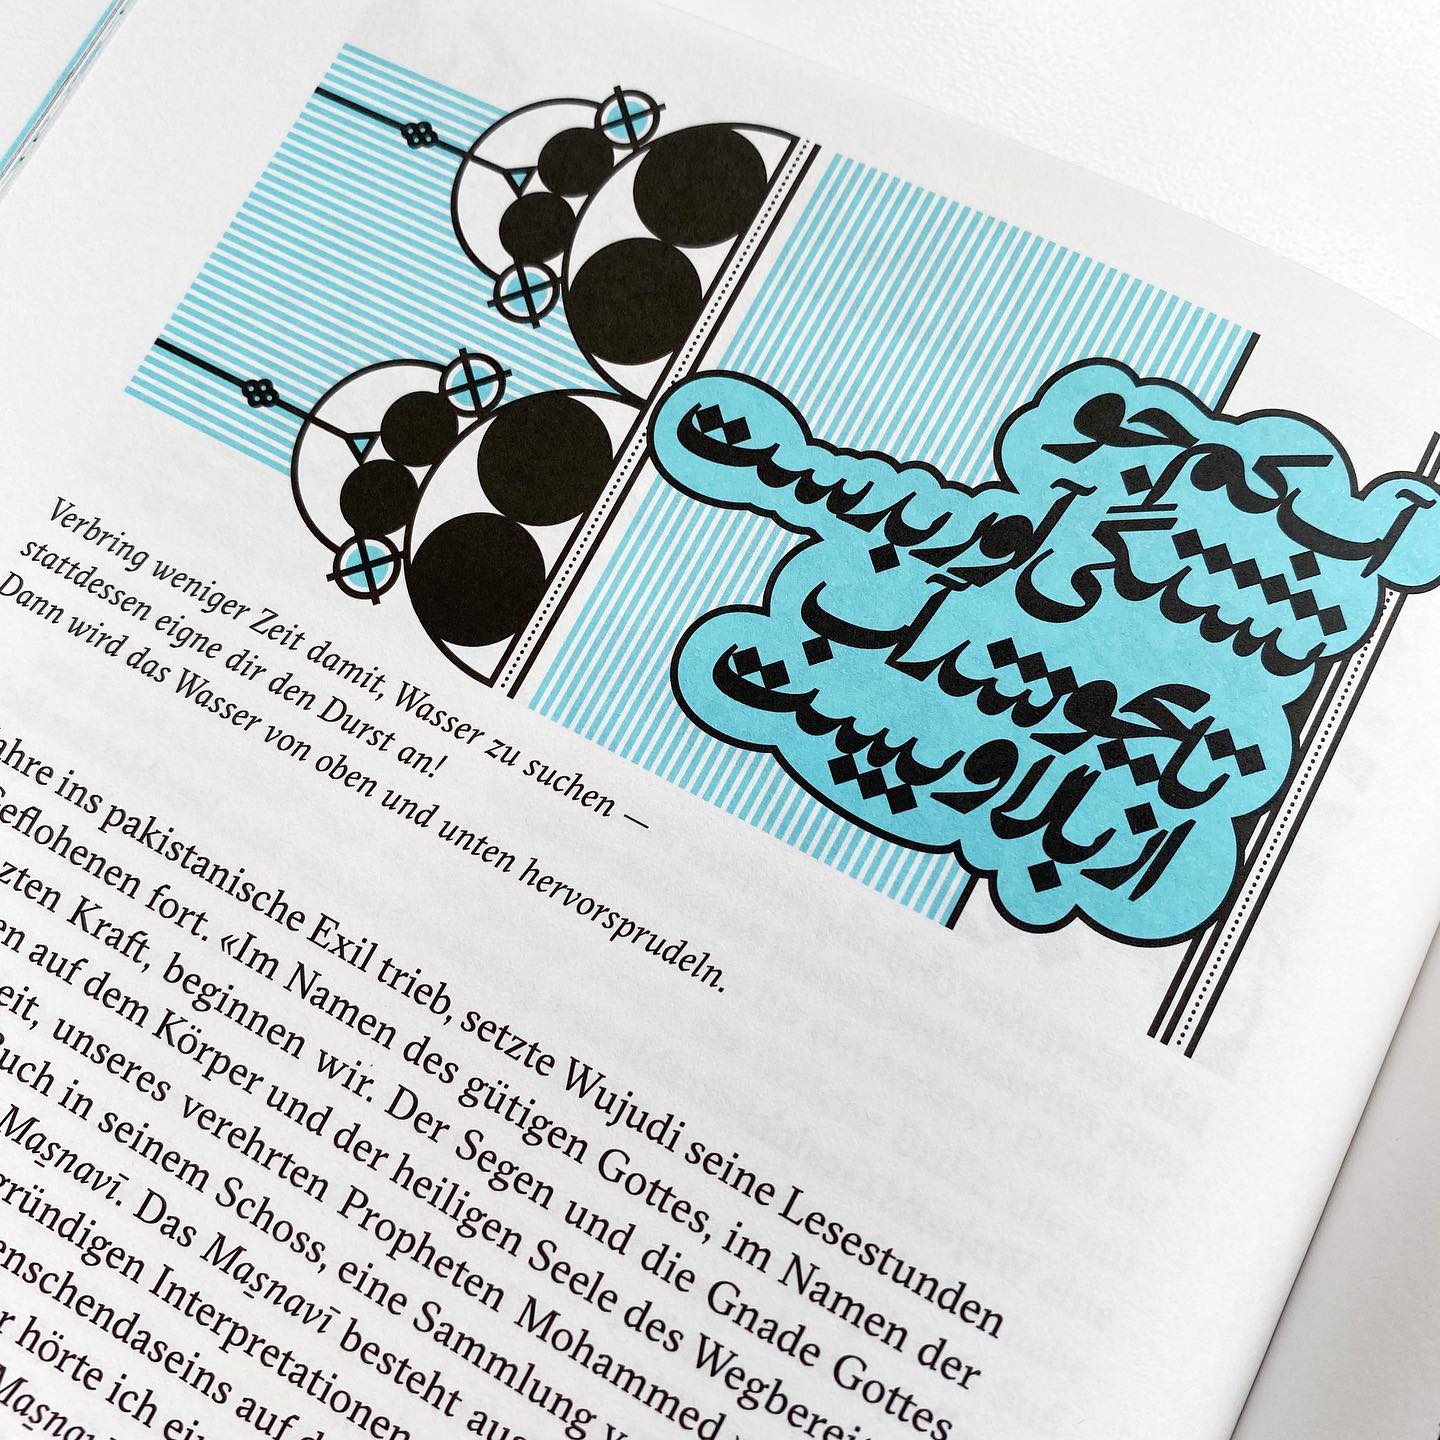 آب کم جو
تشنگی آور بدست
تا بجوشد آب
از بالا و پست
Verbring weniger Zeit damit, Wasser zu suchen —
stattdessen eigne dir den Durst an!
Dann wird das Wasser von oben und unten hervorsprudeln.
ahre ins pakistanische Exil trieb, setzte Wujudi seine Lesestunden
Geflohenen fort. «Im Namen des gütigen Gottes, im Namen der
zten Kraft, beginnen wir. Der Segen und die Gnade Gottes
en auf dem Körper und der heiligen Seele des Wegberei
eit, unseres verehrten Propheten Mohammed
Buch in seinem Schoss, eine Sammlung v
Mas̱navī. Das Mas̱navī besteht aus
gründigen Interpretationen
enschendaseins auf d
r hörte ich ei
Mas̱nav